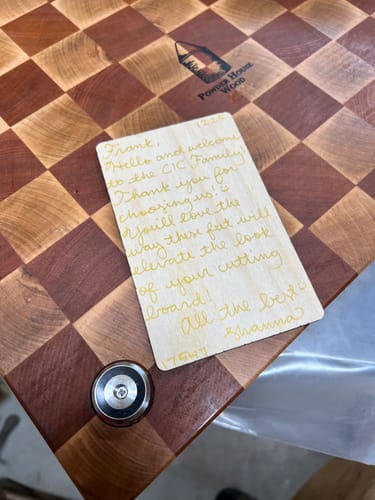 POWDER HOUSE
WOOD
Frank,
Hello and welcome
to the CIC Family!
Thank you for
choosing us!
You'll love the
way these feet will
elevate the look
of your cutting
board!
All the best
Shanna